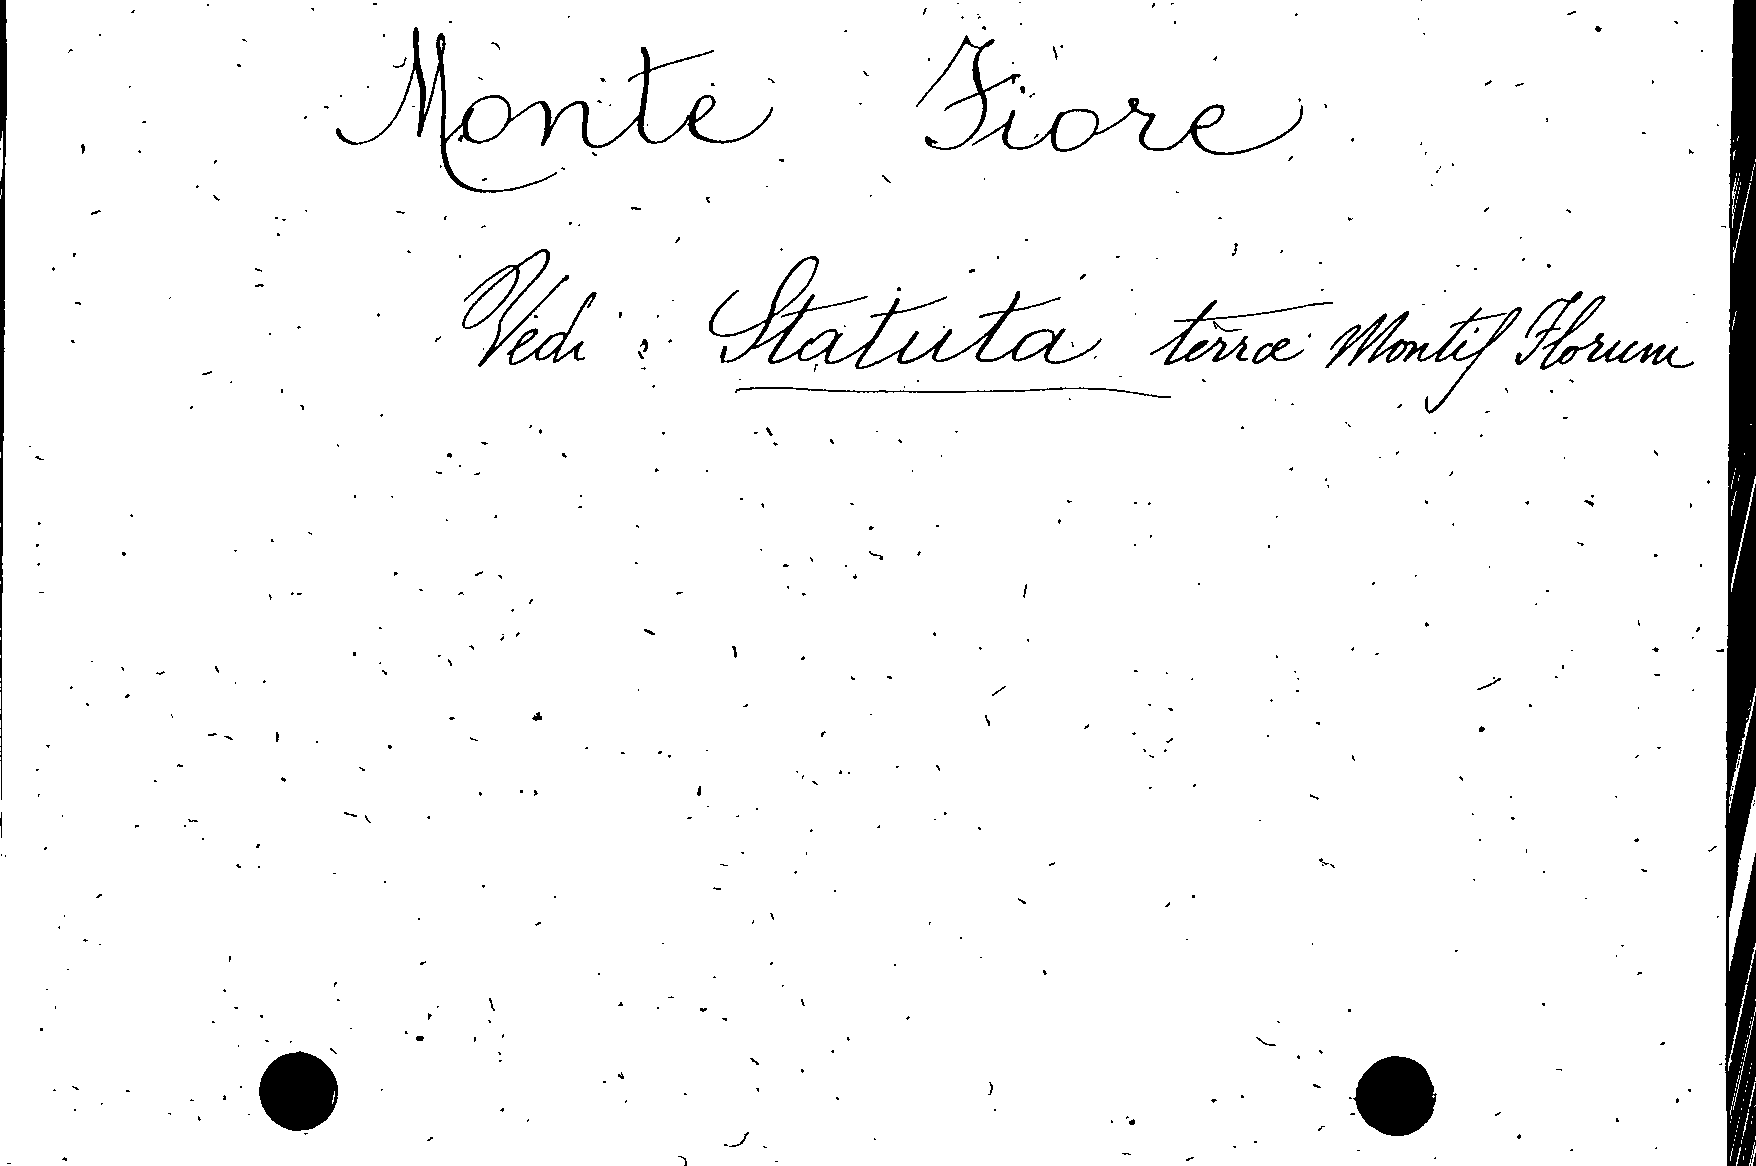 Monte Fiore
Vedi: Statuta terræ Montis Florum